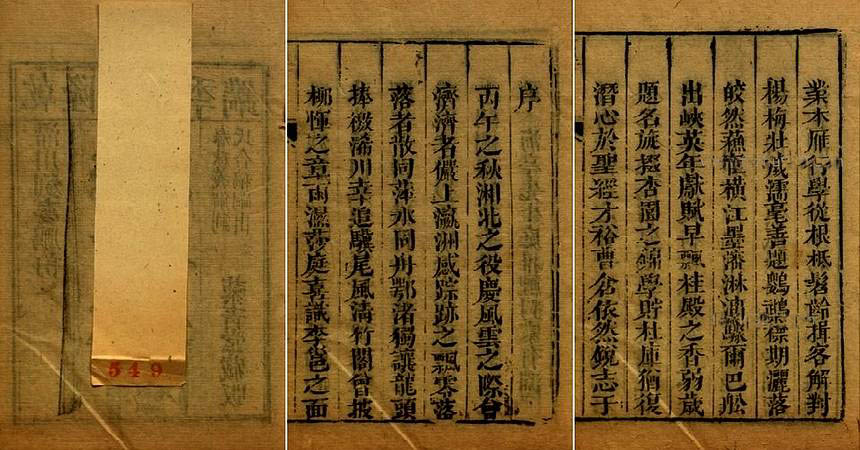 549
序
丙午之秋湘北之役慶風雲之際會
濟濟者儼上瀛洲感踪跡之飄零落
落者散同萍水同舟鄂渚獨讓龍頭
捧檄浠川幸追驥尾風淸竹閣曾披
柳惲之章雨濕莎庭喜識李邕之面
業本雁行學從根柢髫齡揖客解對
楊梅壯歲濡毫善題鸚鵡襟期灑落
皎然蘓橫江墨瀋淋漓爾巴船
出峽英年獻賦早飄桂殿之香弱歲
題名旋掇杏園之錦學貯杜庫猶復
潛心於聖經才裕曹倉依然銳志于